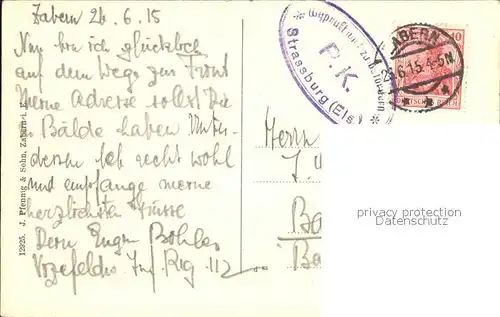 Zabern 26.6.15
Nun bin ich glücklich
auf dem Wege zur Front
Meine Adresse sollst Du
in Bälde haben Unter-
dessen leb recht wohl
und empfange meine
herzlichsten Grüsse
Dein Eugen Böhler
Inf. Reg. 112
12925. J. Pfennig & Sohn, Zabern i. E.
Geprüft und zu befördern
P.K.
Strassburg (Els.)
ZABERN
26.6.15. 4-5N.
10
DEUTSCHES REICH
Herrn
J.
Ba
Ba
privacy protection
Datenschutz